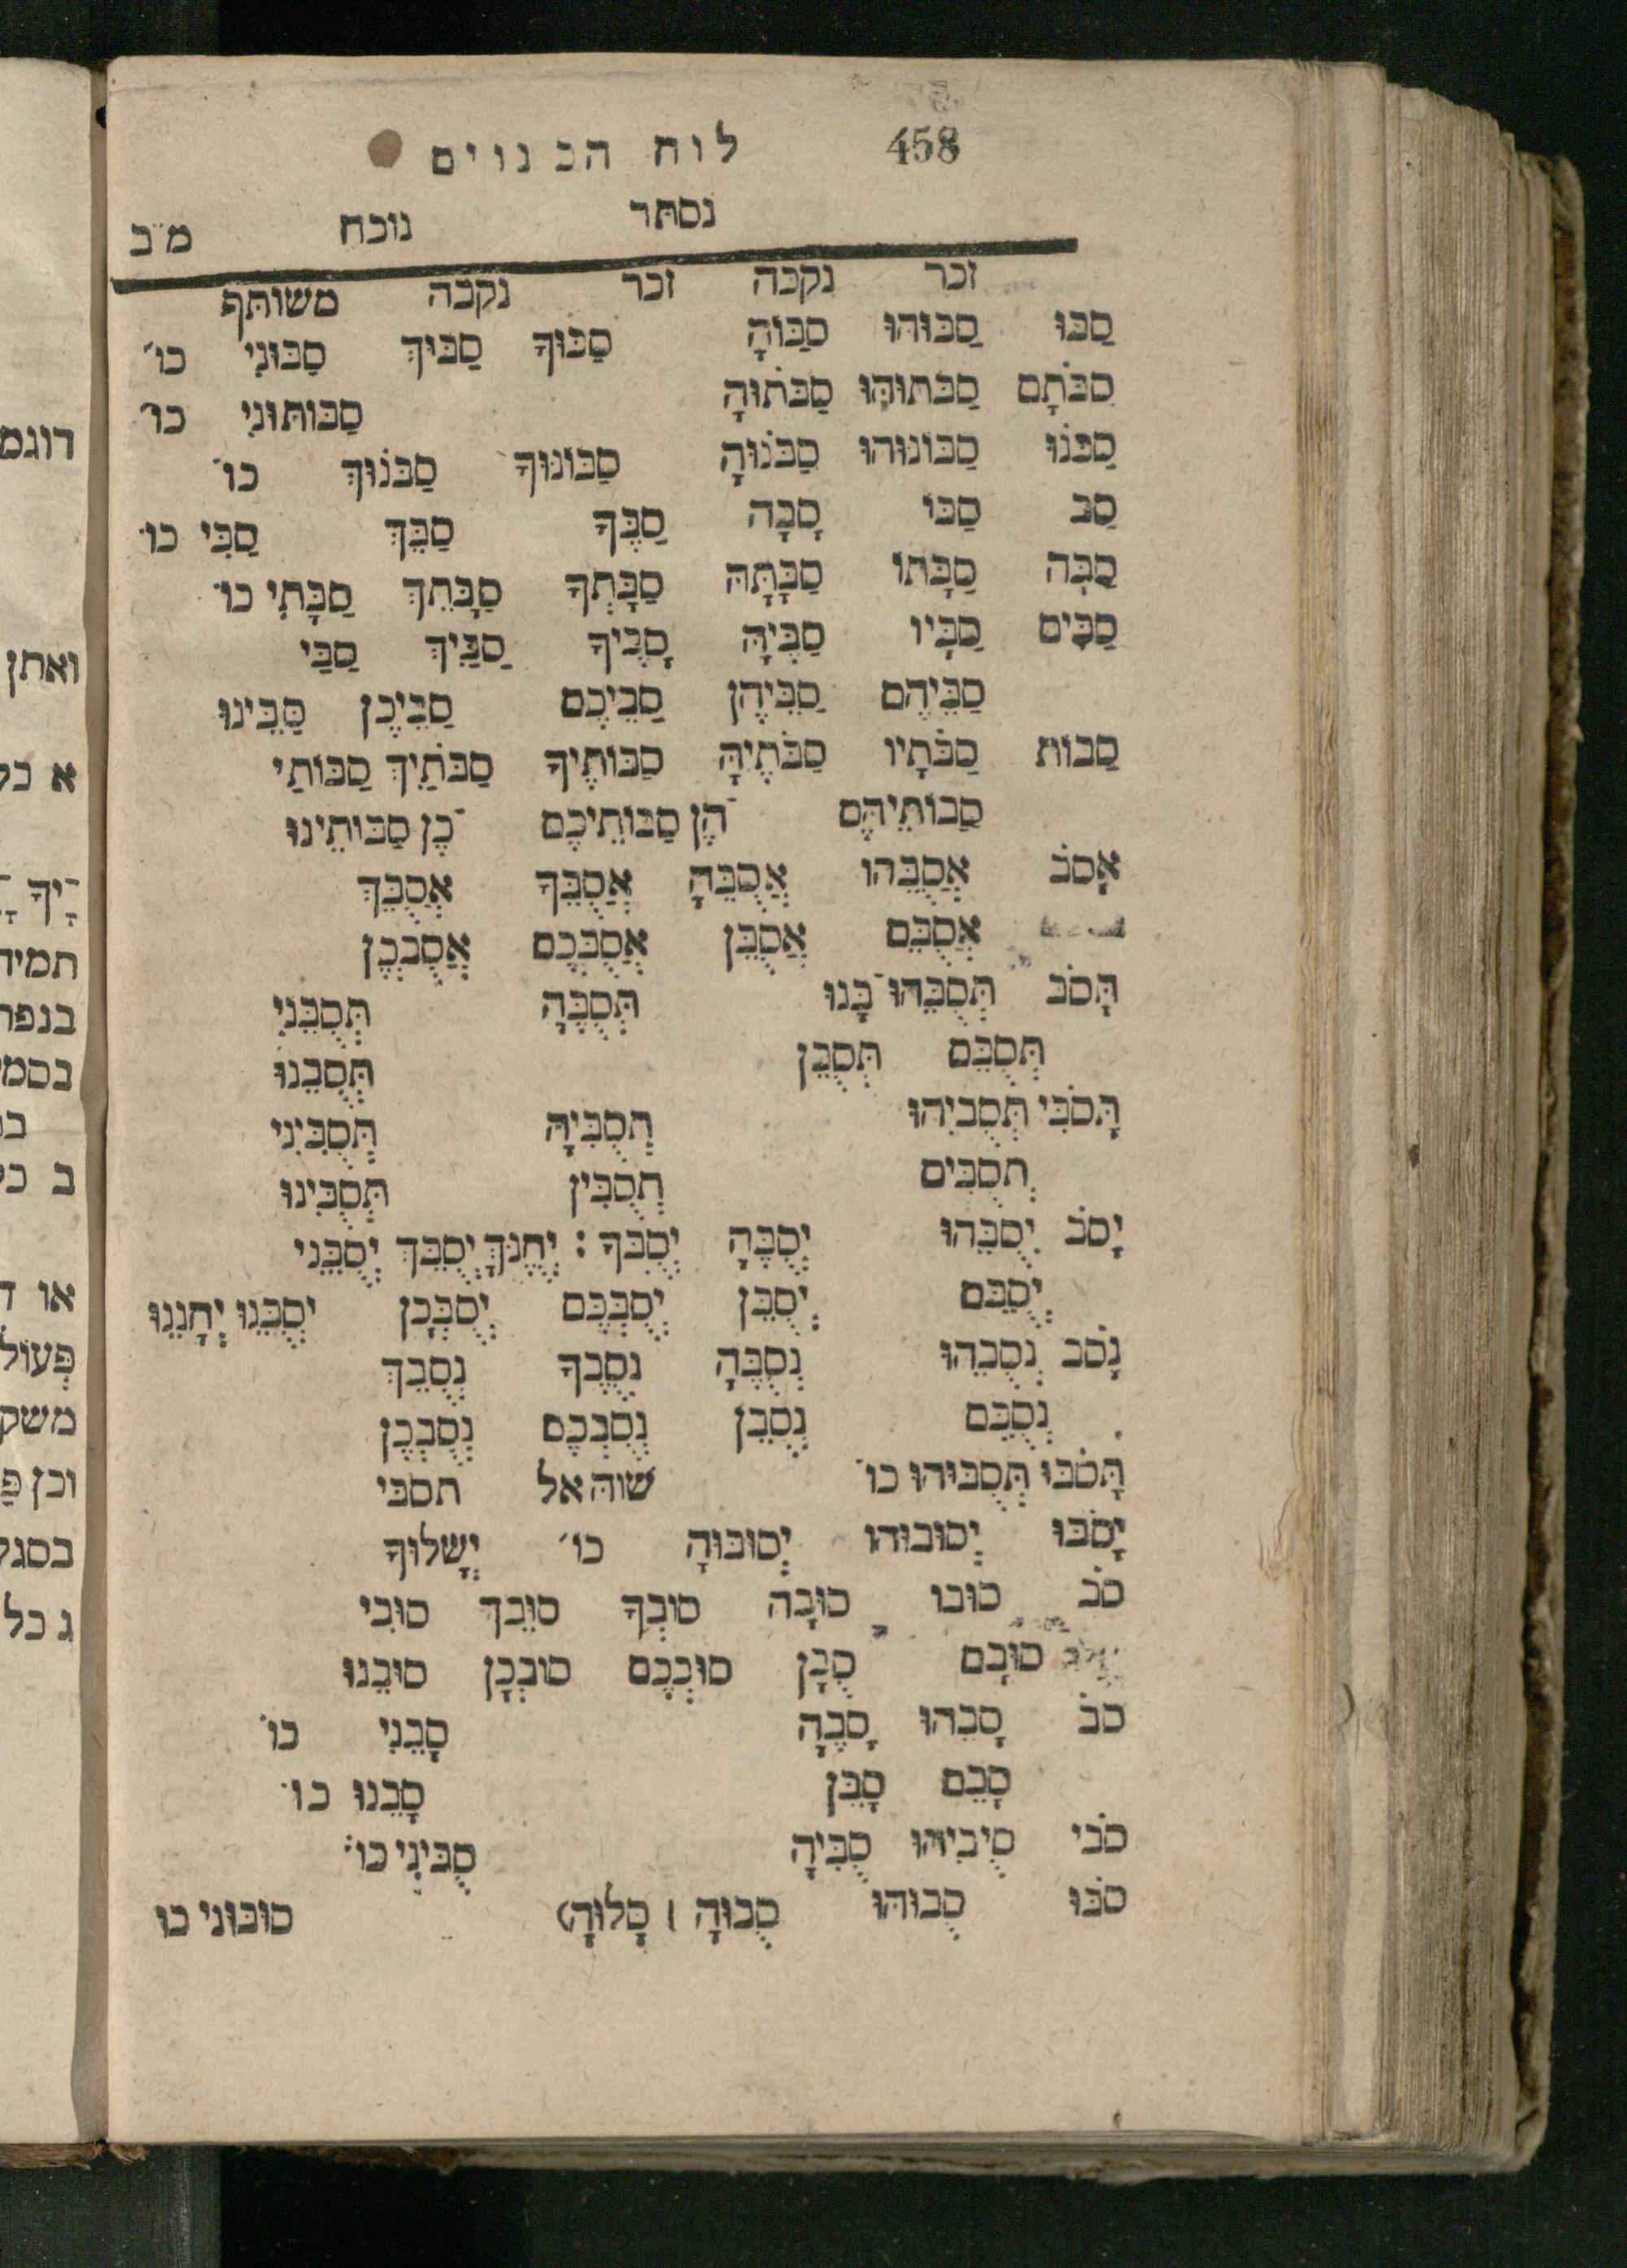 458 לוח הכנוים
נסתר נוכח מ״ב
זכר נקבה זכר נקבה משותף
סַבּוּ סַבּוּהוּ סַבּוּהָ סַבּוּךָ סַבּוּךְ סַבּוּנִי כו׳
סַבֹּתֶם סַבֹּתוּהוּ סַבֹּתוּהָ סַבּוֹתוּנִי כו׳
סַבֹּנוּ סַבּוֹנוּהוּ סַבֹּנוּהָ סַבּוֹנוּךָ סַבֹּנוּךְ כו׳
סַב סַבּוֹ סַבָּה סַבֶּךָ סַבֵּךְ סַבִּי כו׳
סַבָּה סַבָּתוֹ סַבָּתָהּ סַבָּתְךָ סַבָּתֵךְ סַבָּתִי כו׳
סַבִּים סַבָּיו סַבֶּיהָ סַבֶּיךָ סַבַּיִךְ סַבַּי
סַבֵּיהֶם סַבֵּיהֶן סַבֵּיכֶם סַבֵּיכֶן סַבֵּינוּ
סַבוֹת סַבֹּתָיו סַבֹּתֶיהָ סַבּוֹתֶיךָ סַבֹּתַיִךְ סַבּוֹתַי
סַבוֹתֵיהֶם ־הֶן סַבּוֹתֵיכֶם ־כֶן סַבּוֹתֵינוּ
אָסֹב אֲסֻבֵּהוּ אֲסֻבֶּהָ אֲסֻבֶּךָ אֲסֻבֵּךְ
אֲסֻבֵּם אֲסֻבֵּן אֲסֻבְּכֶם אֲסֻבְּכֶן
תָּסֹב תְּסֻבֵּהוּ ־בָּנוּ תְּסֻבֶּהָ תְּסֻבֵּנִי
תְּסֻבֵּם תְּסֻבֵּן תְּסֻבֵּנוּ
תָּסֹבִּי תְּסֻבִּיהוּ תְסֻבִּיהָ תְּסֻבִּינִי
תְסֻבִּים תְסֻבִּין תְּסֻבִּינוּ
יָסֹב יְסֻבֵּהוּ יְסֻבֶּהָ יְסֻבֶּךָ : יְחֻנֶּךָּ יְסֻבֵּךְ יְסֻבֵּנִי
יְסֻבֵּם יְסֻבֵּן יְסֻבְּכֶם יְסֻבְּכֶן יְסֻבֵּנוּ יְחָנֵנוּ
נָסֹב נְסֻבֵּהוּ נְסֻבֶּהָ נְסֻבֶּךָ נְסֻבֵּךְ
נְסֻבֵּם נְסֻבֵּן נְסֻבְּכֶם נְסֻבְּכֶן
תָּסֹבּוּ תְּסֻבּוּהוּ כו׳ שׁוה אל תסבי
יָסֹבּוּ יְסוּבּוּהוּ יְסוּבּוּהָ כו׳ יְשָׁלּוּךָ
סֹב סוּבּוֹ סוּבָּה סוּבְּךָ סוּבֵּךְ סוּבִּי
סוּבָּם סֻבָּן סוּבְּכֶם סוּבְּכֶן סוּבֵּנוּ
סֹב סָבֵּהוּ סָבֶּהָ סָבֵּנִי כו׳
סָבֵּם סָבֵּן סָבֵּנוּ כו׳
סֹבִּי סֻיבִּיהוּ סֻבִּיהָ סֻבִּינִי כו׳
סֹבּוּ סֻבּוּהוּ סֻבּוּהָ (סָלּוּהָ) סוּבּוּנִי כו